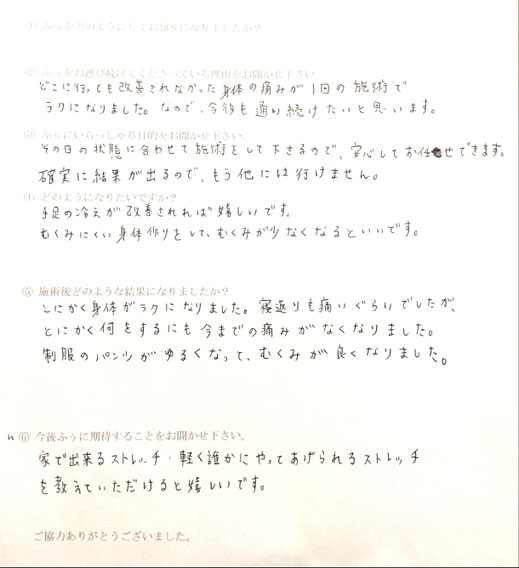 ① ふぅをどのようにしてお知りになりましたか？
② ふぅをお選び続けてくださっている理由をお聞かせ下さい。
どこに行っても改善されなかった身体の痛みが1回の施術で
ラクになりました。なので、今後も通い続けたいと思います。
③ ふぅにいらっしゃる目的をお聞かせ下さい。
その日の状態に合わせて施術をして下さるので、安心してお任せできます。
確実に結果が出るので、もう他には行けません。
④ どのようになりたいですか？
手足の冷えが改善されれば嬉しいです。
むくみにくい身体作りをして、むくみが少なくなるといいです。
⑤ 施術後どのような結果になりましたか？
とにかく身体がラクになりました。寝返りも痛いぐらいでしたが、
とにかく何をするにも今までの痛みがなくなりました。
制服のパンツがゆるくなって、むくみが良くなりました。
⑥ 今後ふぅに期待することをお聞かせ下さい。
家で出来るストレッチ・軽く誰かにやってあげられるストレッチ
を教えていただけると嬉しいです。
ご協力ありがとうございました。